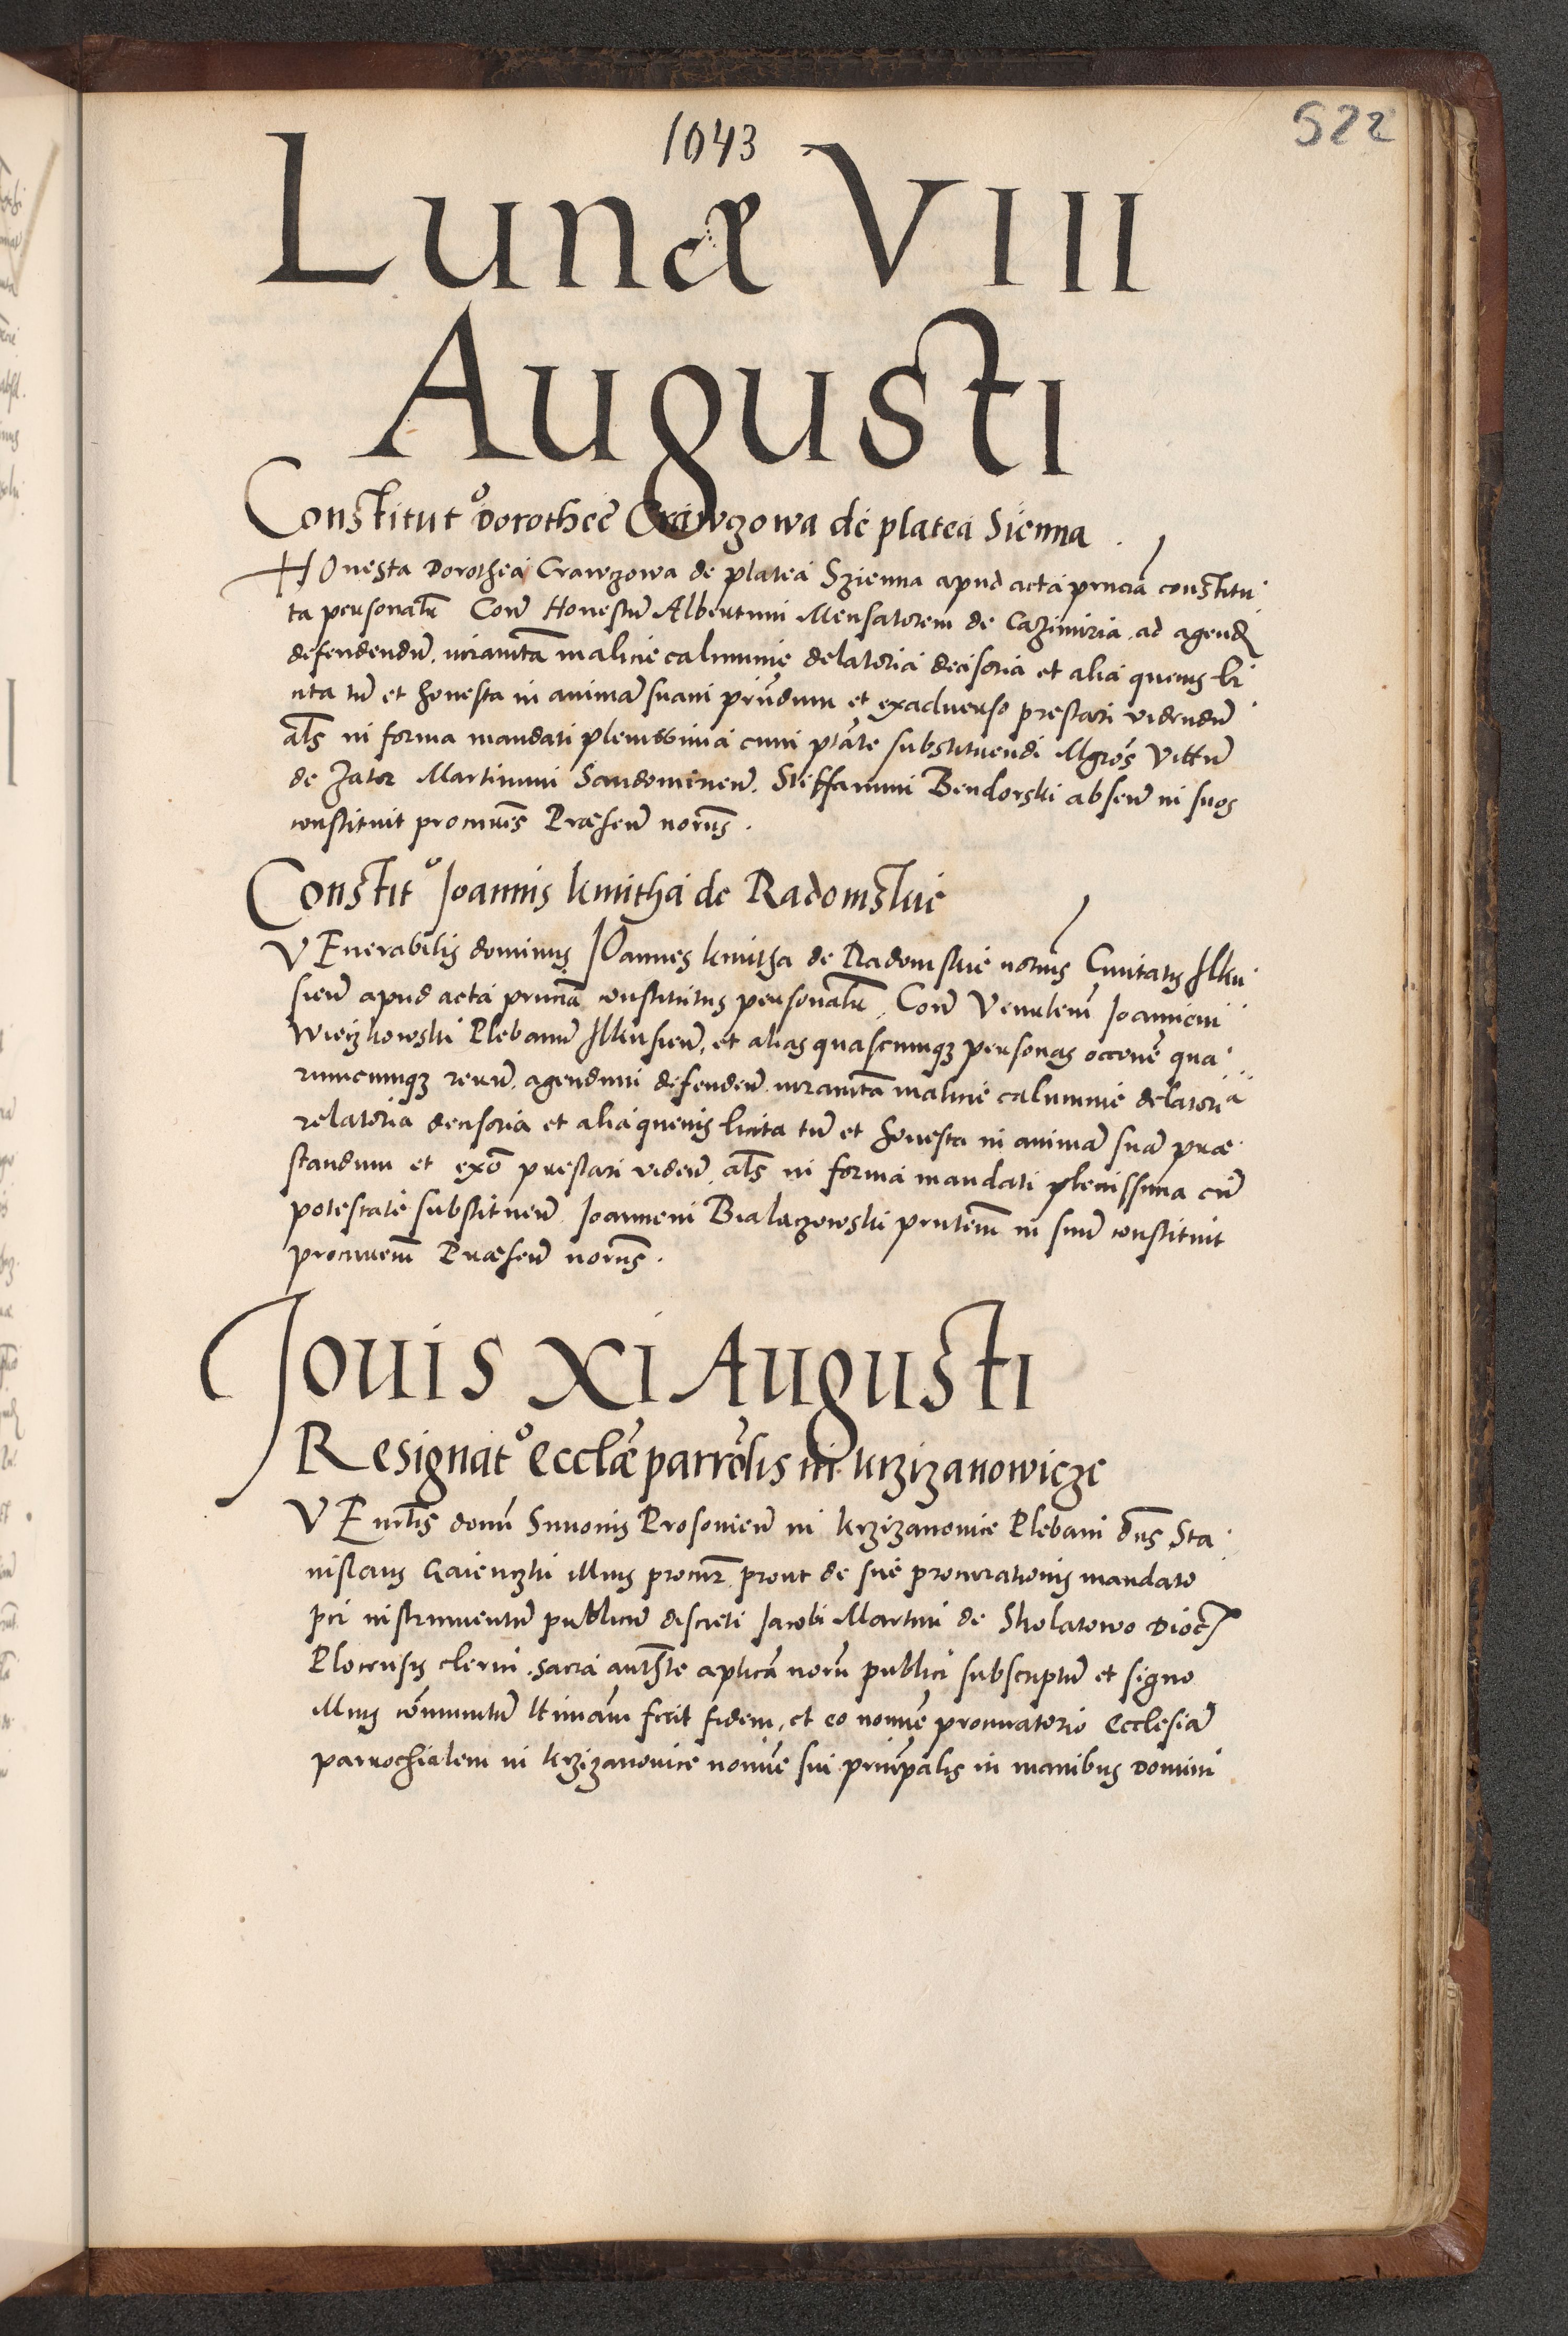 1043
522
Lunæ VIII
Augusti
Constitut° Dorotheẽ Crawzowa de platea Sienna
HOnesta Dorothea Crawzowa de platea Szienna apud acta pnciã constitu
ta personalr̃ Coñ Honestũ Albertum Mensatorem de Cazimiria, ad agend
defendendũ, iuramtã malicie calumnie delatoria decisoria et alia queuis li
cita tñ et honesta in animã suam prñdum et exaduerso prestari videndũ
als̃ in forma mandati plenissima cum ptãte substituendi Mgros̃ Vittũ
de Zator Martinum Sandomirieñ. Steffanum Bendorski abseñ in suos
constituit procures̃ Præseñ norus̃.
Constit° Joannis kmitha de Radomskie
VEnerabilis dominus JOannes kmitha de Radomskie notus Ciuitatis Ilku
sieñ apud acta pnciã constitutus personalr̃, Coñ Venblem̃ Joannem
Wieczkowski Plebanũ Ilkusieñ, et alias quascumqz personas occone qua
rumcumqz rerũ, agendum defendeñ iuramtã malicie calumnie delatoria
relatoria decisoria et alia queuis licita tñ et honesta in animã suã præ
standum et exõ prestari videñ, als̃ in forma mandati plenissima cũ
potestate substitueñ Joannem Bialaczowski pnтem̃ in suũ constituit
procurem̃ Præseñ norus̃.
Jouis XI Augusti
Resignat° Ecclæ parrolis̃ in krzizanowicze
VEnrlis̃ domi Simonis Prosouieñ in krzizanouice Plebani dns̃ Sta
nislaus Gaienczki illius procur̃ prout de sue procurationis mandato
pci instrumentũ publicũ discreti Jacobi Martini de Skolatowo Dioc̃
Plocensis clerici, sacra autste aplica norĩ publici subscriptũ et signo
illius cõmunitũ ltimam fecit fidem, et eo noiñe procuratorio Ecclesiã
parrochialem in krzizanouice noiñe sui prinpalis in manibus Domini